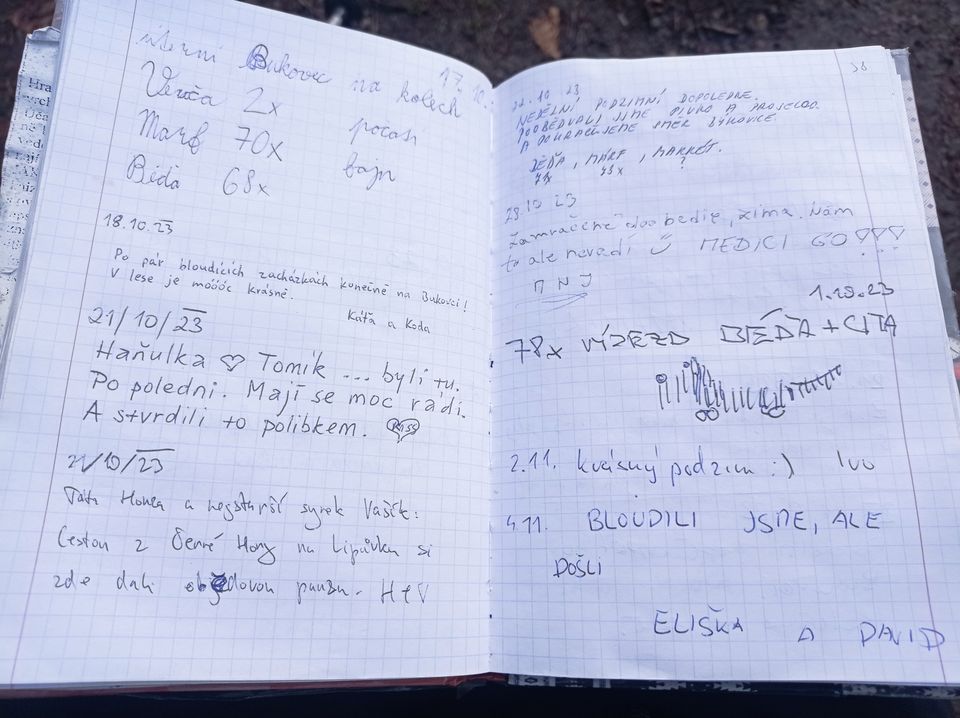 úterní Bukovec na kolech 17.10.
Verča 2x počasí
Marť 70x fajn
Béďa 68x
18.10.23
Po pár bloudících zacházkách konečně na Bukovci!
V lese je móóóc krásně.
Káťa a Koda
21/10/23
Haňulka ♡ Tomík ... byli tu.
Po poledni. Mají se moc rádi.
A stvrdili to polibkem. KISS
21/10/23
Táta Honza a nejstarší synek Vašík:
Cestou z Černé Hory na Lipůvku si
zde dali obědovou pauzu. H+V
22.10 23
NEDĚLNÍ PODZIMNÍ DOPOLEDNE.
POOBĚDVALI JSME PIVKO A
A POKRAČUJEME SMĚR BÝKOVICE.
BÉĎA, MÁRF, MARKÉT.
?
28.10 23
Zamračené doobedie, zima. Nám
to ale nevadí ☺ MEDICI GO!!!
M N J
1.10.23
78x VÝJEZD BÉĎA + CITA
2.11. krásný podzim :) Ivo
4.11. BLOUDILI JSME, ALE
DOŠLI
ELIŠKA A DAVID